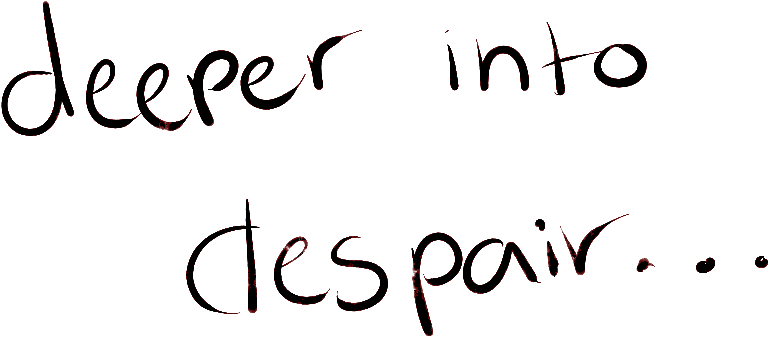 deeper into
despair...